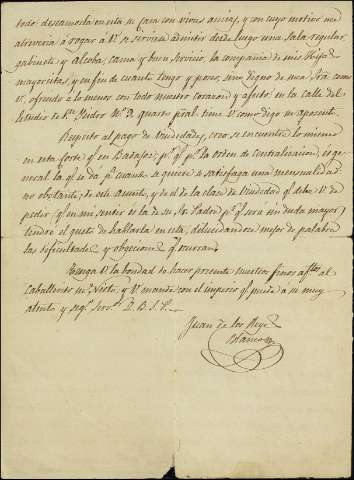 todo: descamos la esta su casa con vivas ansias, y con cuyo motivo me
atreveria á rogar á V. se serviese admitir desde luego una sala regular,
gabinete y Alcoba, cama y buen servicio, la compañia de mis Hijas
mayorcitas, y en fin de cuanto tengo y poseo, sin digno de una Sra. como
V. ofrendo á lo menos con todo nuestro corazon y afecto: en la calle del
Estudio de Sn. Ysidro No. quarto pral. tiene V. como digo su aposento.
Respecto al pago de Viudedades, creo se encuentre lo mismo
en esta Corte qe. en Badajoz; pr. qe. pr. la orden de Centralizacion, es ge-
neral la qe. se dá pa. cuanto se quiere se satisfaga una mensualidad.
no obstante; de este asunto, y de el de la clase de Viudedad qe. debe V. de
pedir, qe. en mi sentir es la de su Sr. Padre, pr. qe. será sin duda mayor,
tendré el gusto de hablarla en esta, dilucidandose mejor de palabra
las dificultades y objeciones qe. ocurran.
Tenga V. la bondad de hacer presente nuestros finos aftos. al
Caballerito su Nieto, y V. mande con el imperio qe. puede á su muy
atento y segº. Servor. Q. B. S. P.
Juan de los Reyes
Blanco